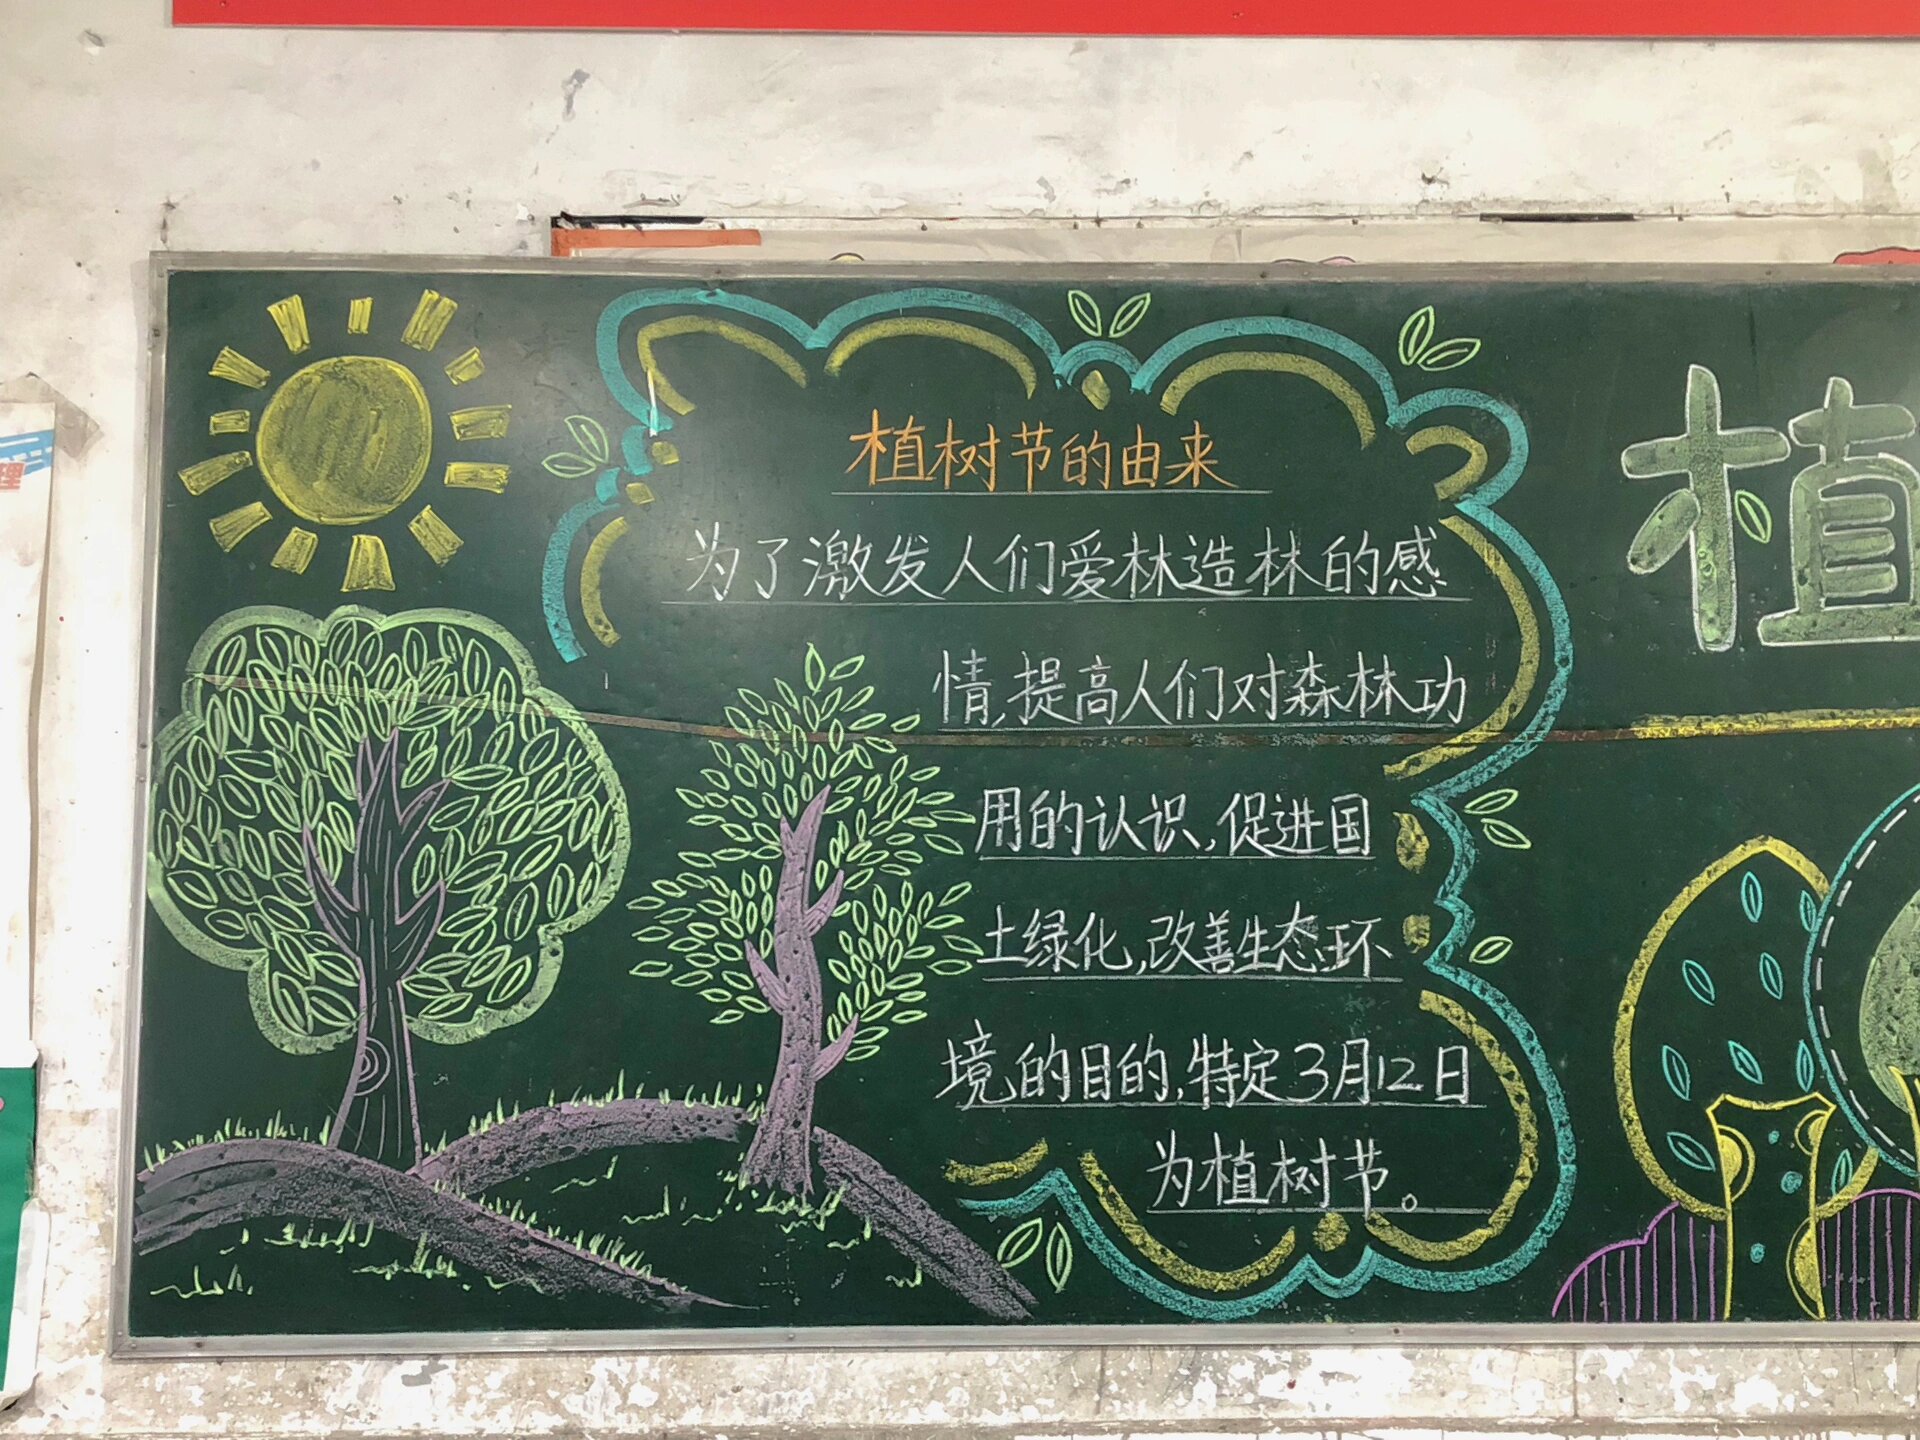 植树节的由来
为了激发人们爱林造林的感
情,提高人们对森林功
用的认识,促进国
土绿化,改善生态环
境的目的,特定3月12日
为植树节。
植
理